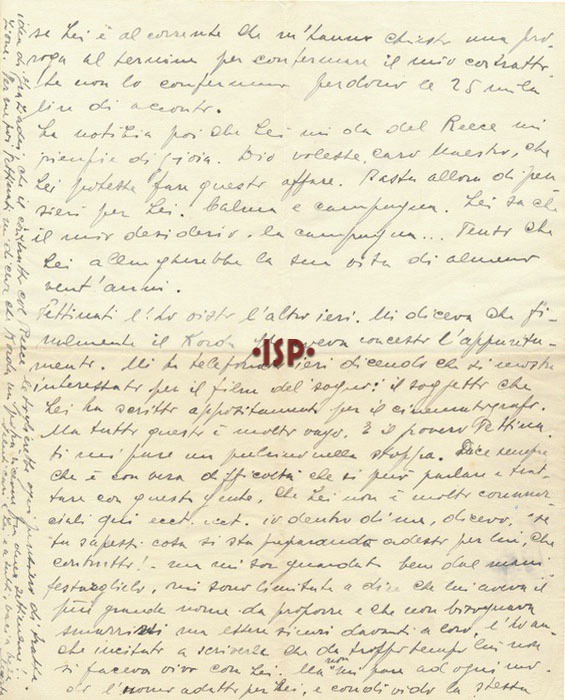 se Lei è al corrente che m'hanno chiesto una pro-
roga al termine per confermare il mio contratto.
Se non lo confermano perdono le 25 mila
lire di acconto.
La notizia poi che Lei mi da del Reece mi
riempie di gioia. Dio volesse, caro Maestro, che
Lei potesse fare questo affare. Basta allora di pen
sieri per Lei. Calma e campagna. Lei sa ch'è
il mio desiderio. la campagna... Tento che
Lei allungherebbe la sua vita di almeno
vent'anni.
Pettinati l'ho visto l'altro ieri. Mi diceva che fi-
nalmente il Korda aveva concesso l'appunta-
mento. Mi ha telefonato ieri dicendo che si mostra
interessato per il film del sogno: il soggetto che
Lei ha scritto appositamente per il cinematografo.
Ma tutto questo è molto vago. E il povero Pettina
ti mi pare un pulcino nella stoppa. Dice sempre
che è con vera difficoltà che si può parlare e trat-
tare con questa gente, che Lei non è molto commer-
ciali qui ecct. ecct. io dentro di me, dicevo, "se
tu sapessi cosa si sta preparando adesso per lui, che
contratto!- ma mi son guardata ben dal mani
festarglielo, mi sono limitata a dire che lui aveva il
più grande nome da proporre e che non bisognava
smarrirsi ma essere sicuri davanti a loro. L'ho an-
che incitato a scriverle che da troppo tempo lui non
si faceva vivo con Lei. Ma non mi pare ad ogni mo-
do l'uomo adatto per Lei, e condivido la stessa
idea di che il contratto col Reece